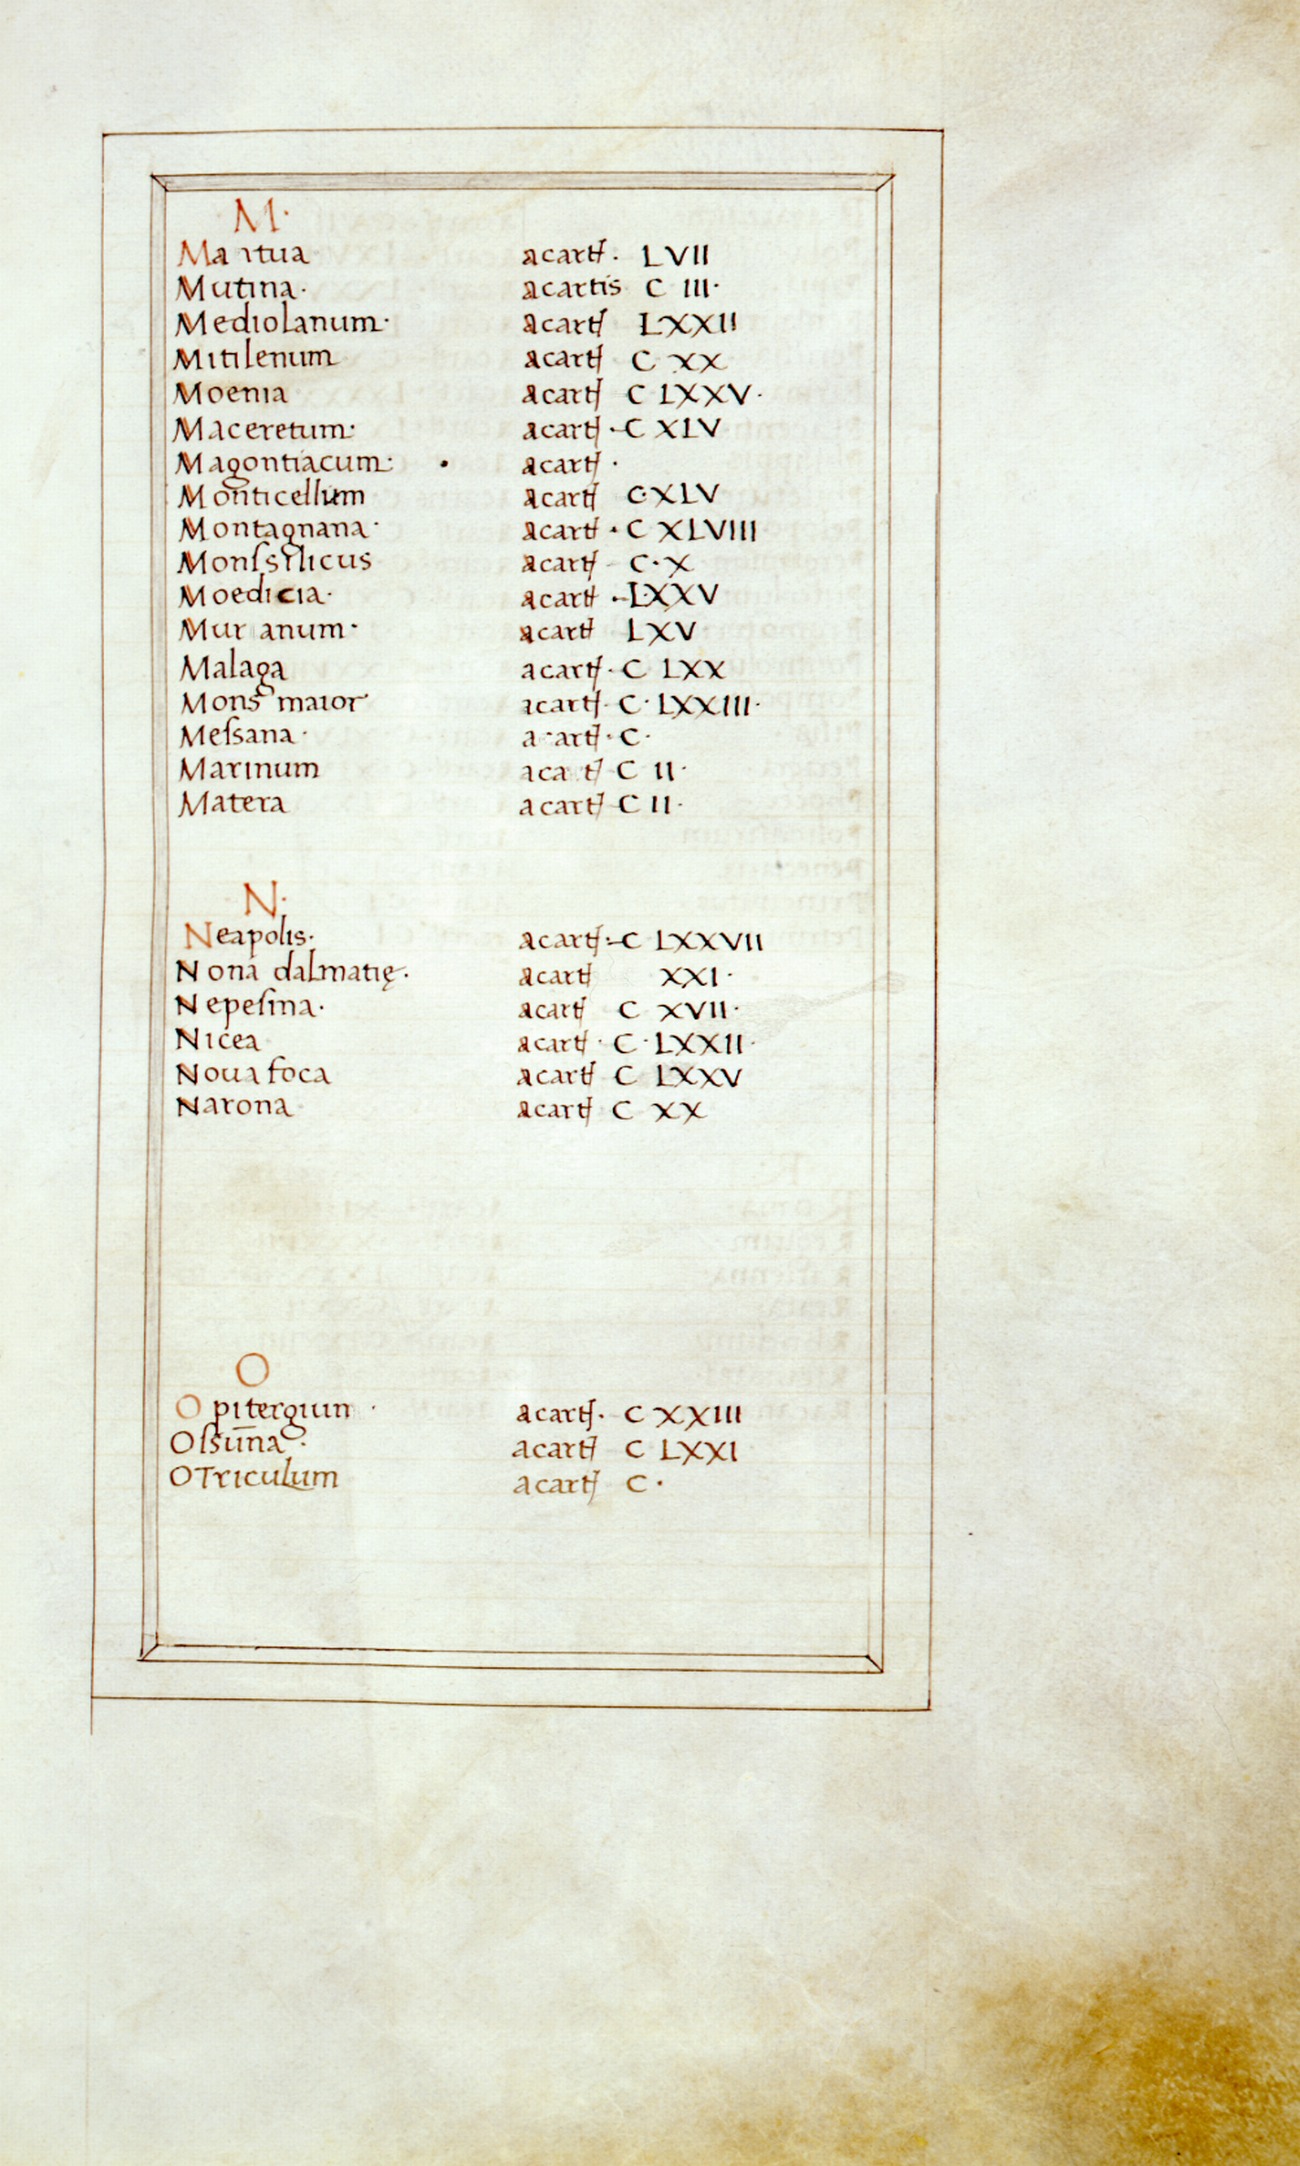 ·M·
Mantua acartɟ · LVII
Mutina · acartis C III ·
Mediolanum · acartɟ LXXII
Mitilenum acartɟ C XX
Moenia acartɟ C LXXV ·
Maceretum · acartɟ · C XLV
Magontiacum · · acartɟ ·
Monticellum acartɟ C · XLV
Montagnana · acartɟ · C XLVIII
Monſsilicus acartɟ C · X
Moedicia · acartɟ · LXXV
Muranum · acartɟ LXV
Malaga acartɟ · C LXX
Mons maior acartɟ · C · LXXIII ·
Meſsana · acartɟ · C ·
Marinum acartɟ C II ·
Matera acartɟ C II ·
·N·
Neapolis · acartɟ · C LXXVII
Nona dalmatię · acartɟ XXI ·
Nepeſina · acartɟ C XVII ·
Nicea acartɟ · C · LXXII ·
Noua foca acartɟ C LXXV
Narona acartɟ C XX
O
Opitergium · acartɟ · C XXIII
Oſsuna · acartɟ C LXXI
OTriculum acartɟ C ·